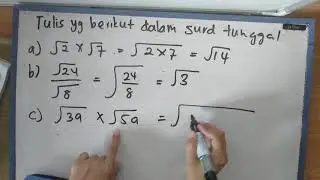 Tulis yg berikut dalam surd tunggal
a) √2 × √7 = √2×7 = √14
b) √24/√8 = √24/8 = √3
c) √3a × √5a = √